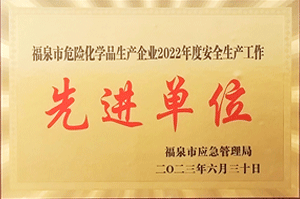 福泉市危险化学品生产企业2022年度安全生产工作
先进单位
福泉市应急管理局
二〇二三年六月三十日